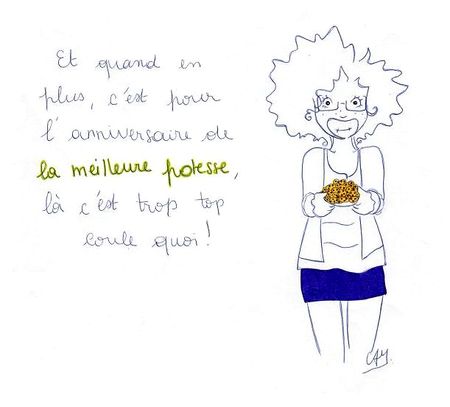 Et quand en
plus, c'est pour
l'anniversaire de
la meilleure potesse,
là c'est trop top
coule quoi!
CAM.